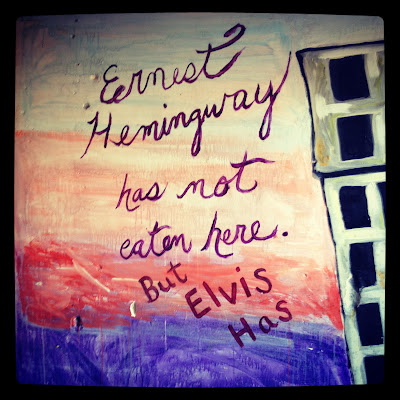 Ernest
Hemingway
has not
eaten here.
But
Elvis
Has